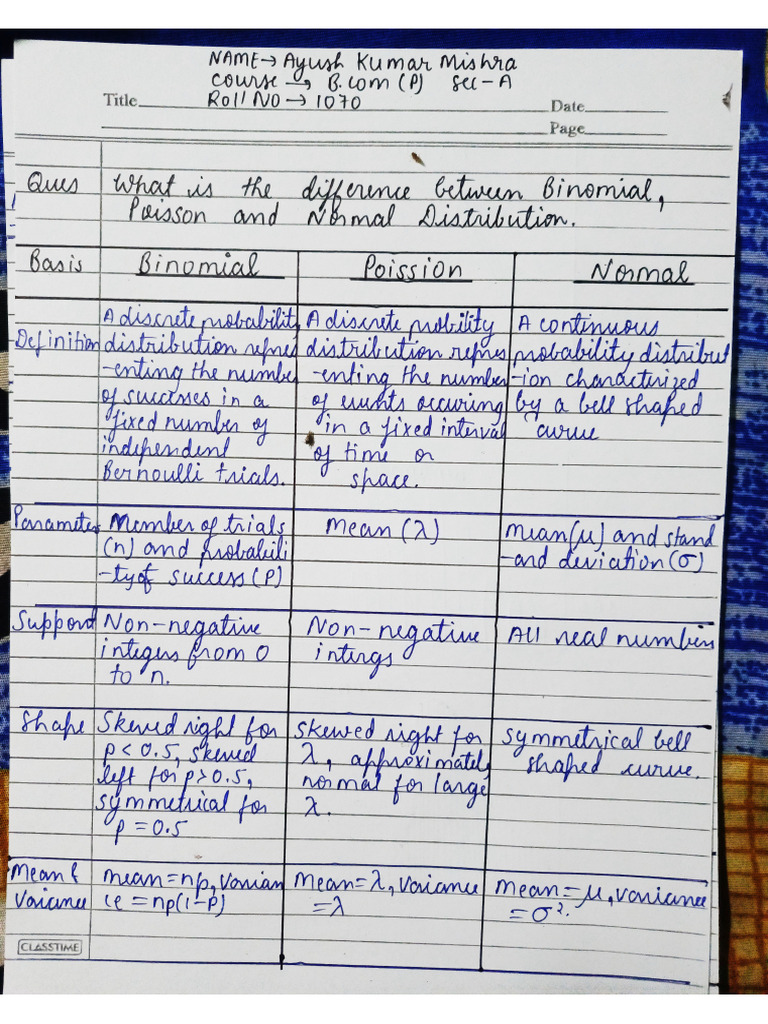 NAME→ Ayush Kumar Mishra
Course → B.com (P) Sec-A
Title Roll NO → 1070 Date
Page
Ques What is the difference between Binomial,
Poisson and Normal Distribution.
Basis Binomial Poission Normal
Definition
A discrete probability
distribution repres
-enting the number
of successes in a
fixed number of
independent
Bernoulli trials.
A discrete probility
distribution repres
-enting the number
of events occuring
in a fixed interval
of time or
space.
A continuous
probability distribut
-ion characterized
by a bell shaped
curve
Parameter
Member of trials
(n) and probabili
-ty of success (P)
Mean (λ)
Mean (μ) and stand
-ard deviation (σ)
Support
Non-negative
integers from 0
to n.
Non-negative
intergs
All real numbers
Shape
Skewed right for
p < 0.5, skewed
left for p > 0.5,
symmetrical for
p = 0.5
skewed right for
λ, approximately
normal for large
λ.
symmetrical bell
shaped curve.
Mean &
Variance
mean = np, varian
ce = np(1-P)
Mean = λ, variance
= λ
Mean = μ, variance
= σ².
CLASSTIME